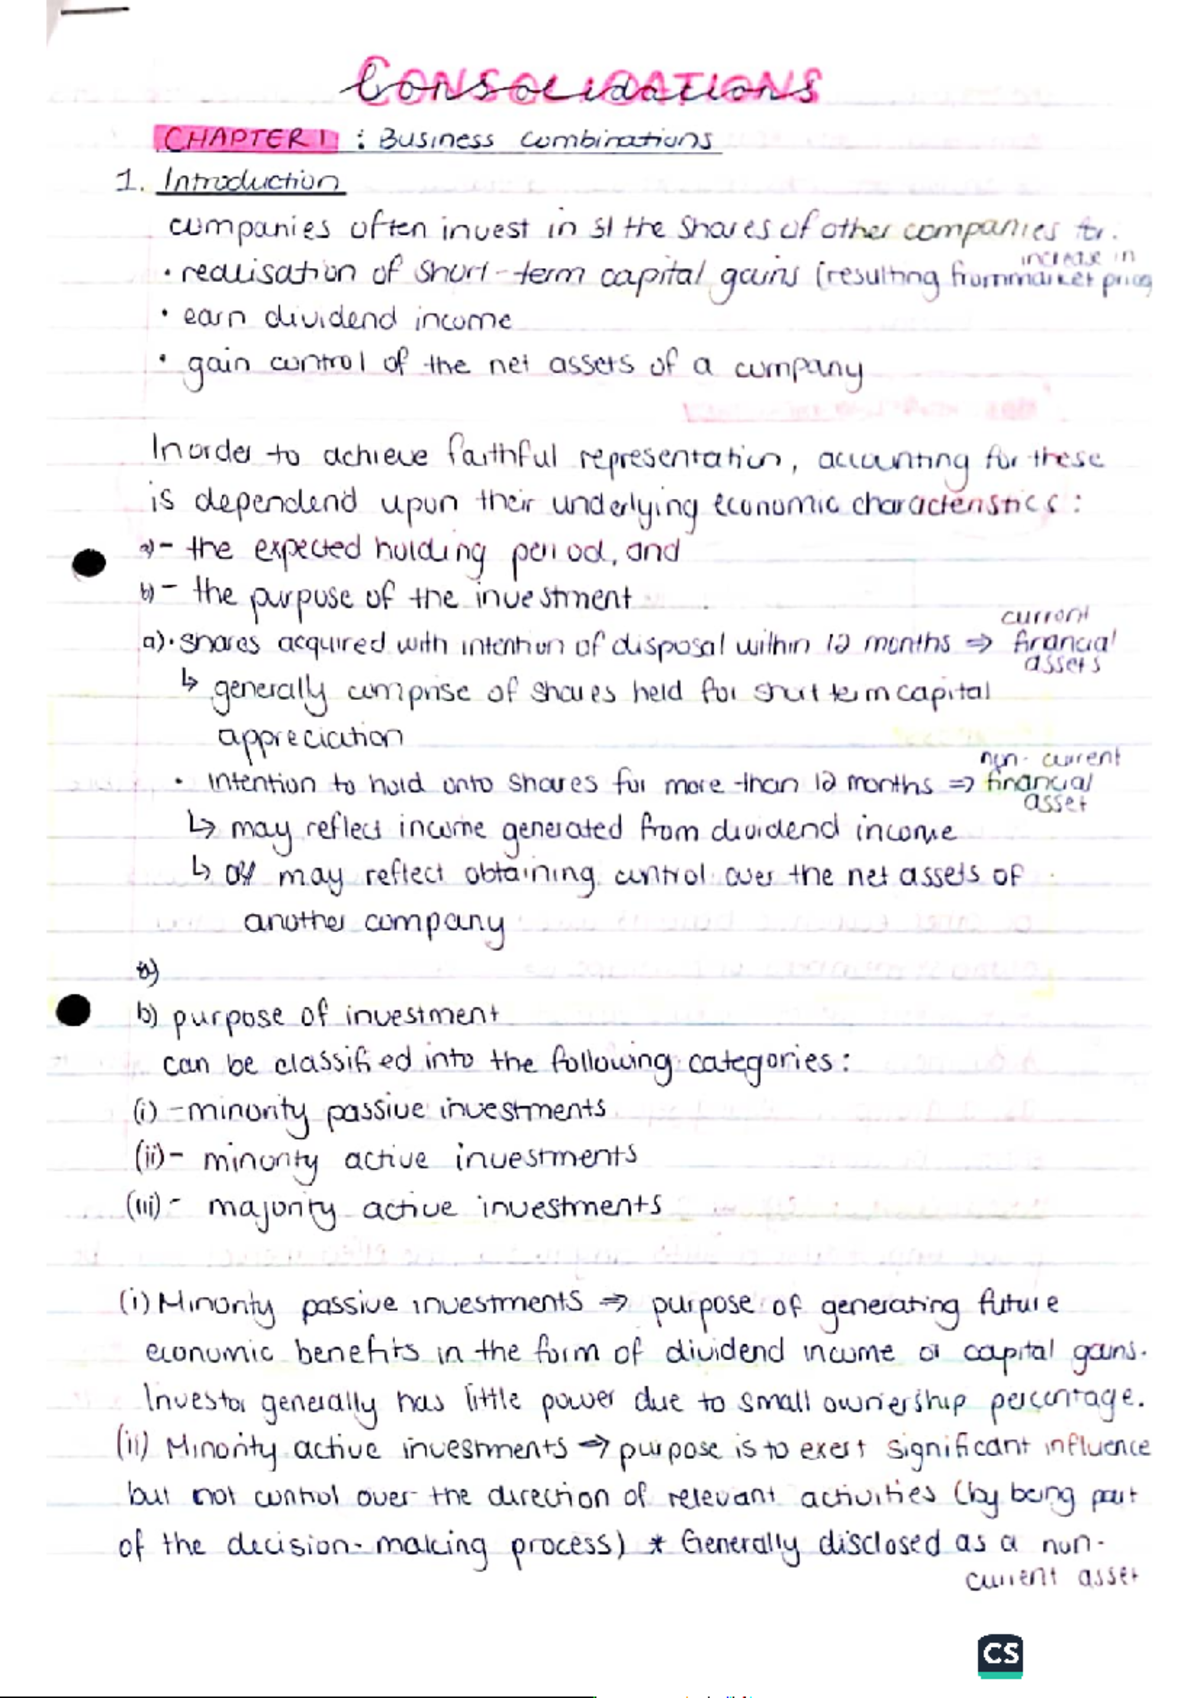 Consolidations
CHAPTER 1 : Business Combinations
1. Introduction
companies often invest in the shares of other companies for:
• realisation of short-term capital gains (resulting from increase in market price
• earn dividend income
• gain control of the net assets of a company
Inorder to achieve faithful representation, accounting for these
is dependend upon their underlying economic characteristics :
a) - the expected holding period, and
b) - the purpose of the investment
a) • shares acquired with intention of disposal within 12 months ⇒ current financial assets
↳ generally comprise of shares held for short term capital
appreciation
• Intention to hold onto shares for more than 12 months ⇒ non-current financial asset
↳ may reflect income generated from dividend income
↳ may reflect obtaining control over the net assets of
another company
b) purpose of investment
can be classified into the following categories :
(i) - minority passive investments
(ii) - minority active investments
(iii) - majority active investments
(i) Minority passive investments ⇒ purpose of generating future
economic benefits in the form of dividend income or capital gains.
Investor generally has little power due to small ownership percentage.
(ii) Minority active investments ⇒ purpose is to exert significant influence
but not control over the direction of relevant activities (by being part
of the decision-making process) * Generally disclosed as a non-
current asset
CS